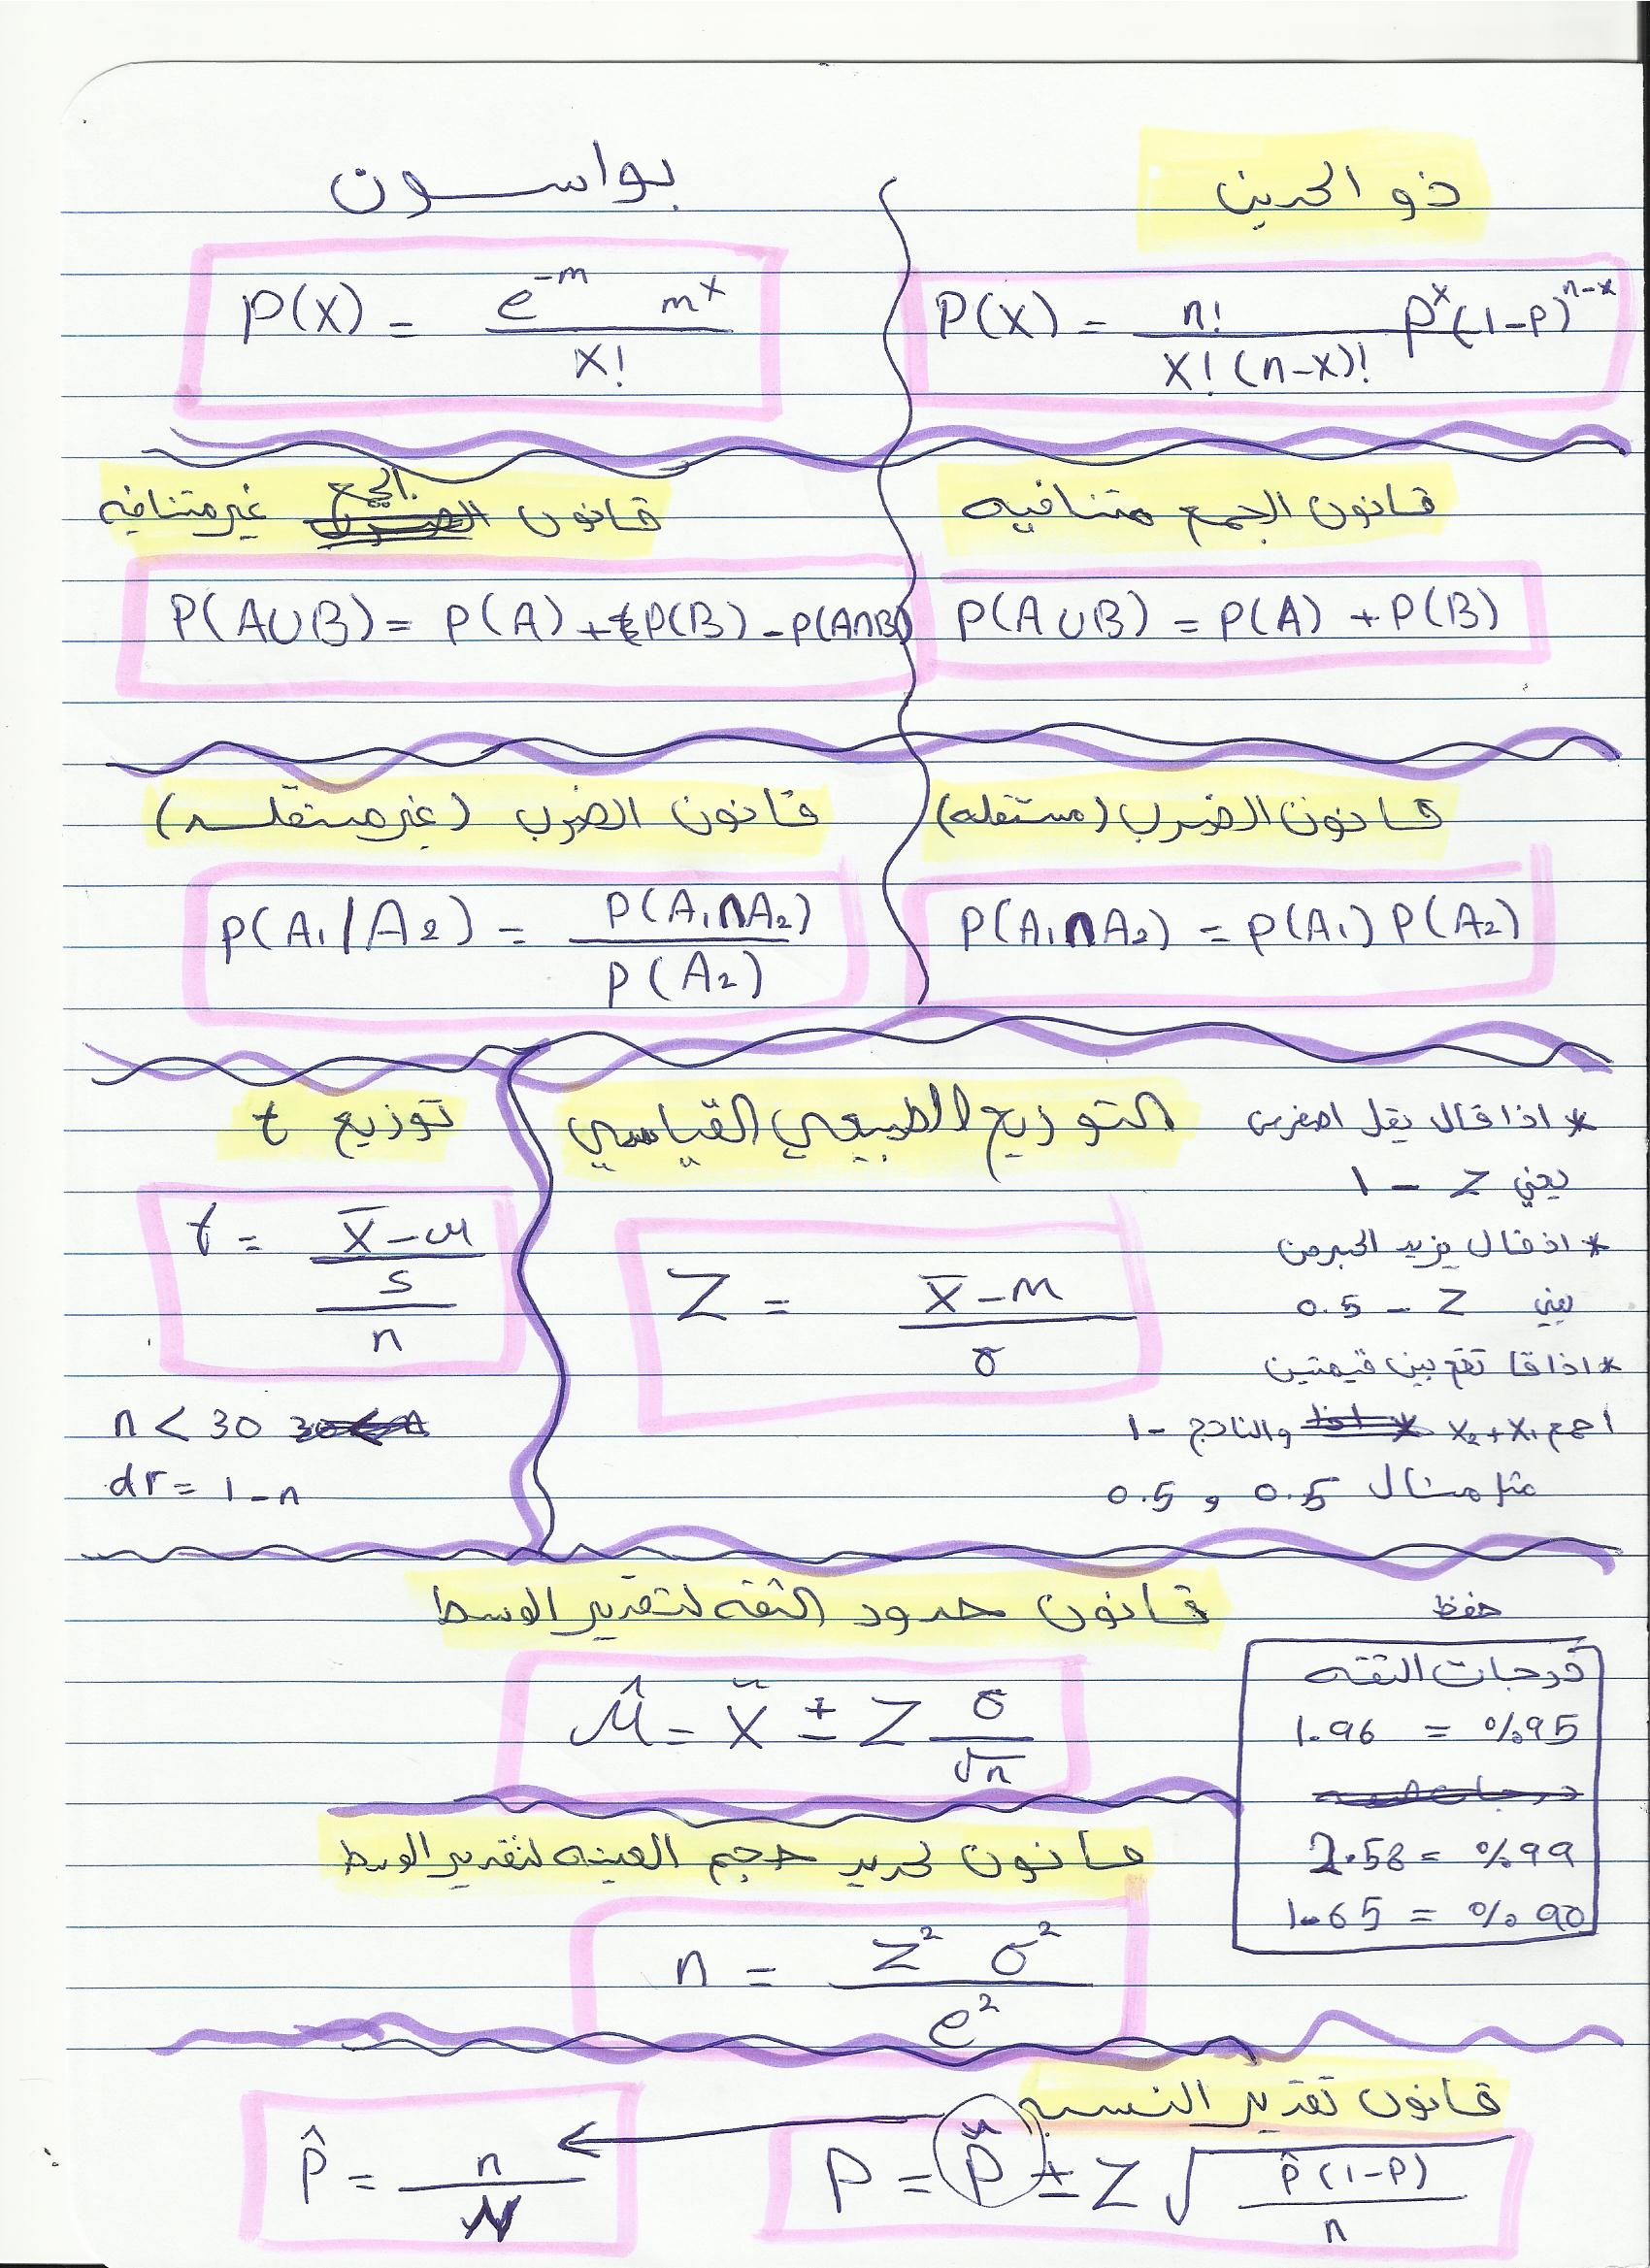 ذو الحدين
P(X) = n! / X! (n-X)! P^X (1-P)^n-x
بواسون
P(X) = e^-m m^x / X!
قانون الجمع متنافيه
P(A∪B) = P(A) + P(B)
قانون الجمع غير متنافيه
P(A∪B) = P(A) + P(B) - P(A∩B)
قانون الضرب (مستقله)
P(A₁∩A₂) = P(A₁) P(A₂)
قانون الضرب (غير مستقله)
P(A₁/A₂) = P(A₁∩A₂) / P(A₂)
* اذا قال يقل اصغر من
يعني Z - 1
* اذ قال يزيد اكبر من
يعني Z - 0.5
* اذا قا تقع بين قيمتين
اجمع X₁ + X₂ والناتج - 1
مثال 0.5 و 0.5
التوزيع الطبيعي القياسي
Z = X̄ - M / σ
توزيع t
t = X̄ - µ / S / n
n < 30
dr = 1 - n
قانون حدود الثقه لتقدير الوسط
µ̂ = X̄ ± Z σ / √n
حفظ
درجات الثقه
%95 = 1.96
%99 = 2.58
%90 = 1.65
قانون تحديد حجم العينه لتقدير الوسط
n = Z² σ² / e²
قانون تقدير النسبه
P = P̂ ± Z √ P̂(1-P) / n
P̂ = n / N